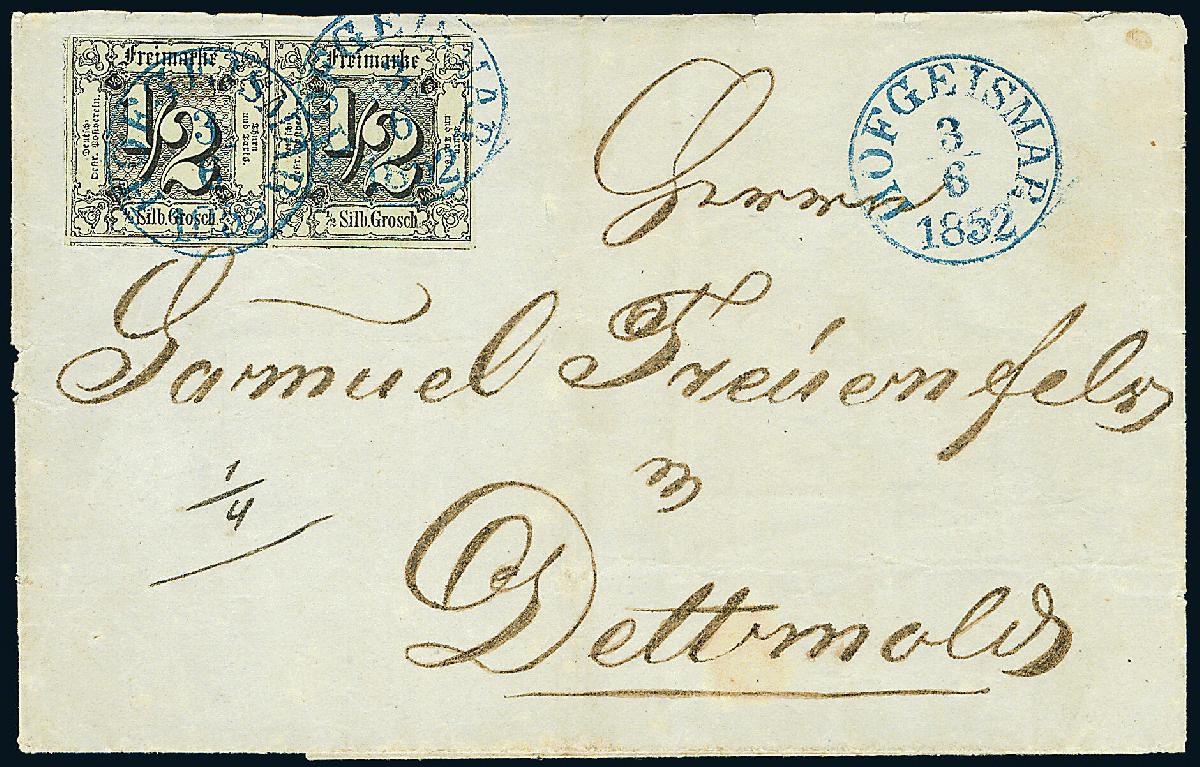 Freimarke Freimarke
1/2 1/2
1/2 Silb. Grosch 1/2 Silb. Grosch
HOFGEISMAR
3/6
1852
Herrn
Samuel Freüenfels
in
Dettmold
1/4